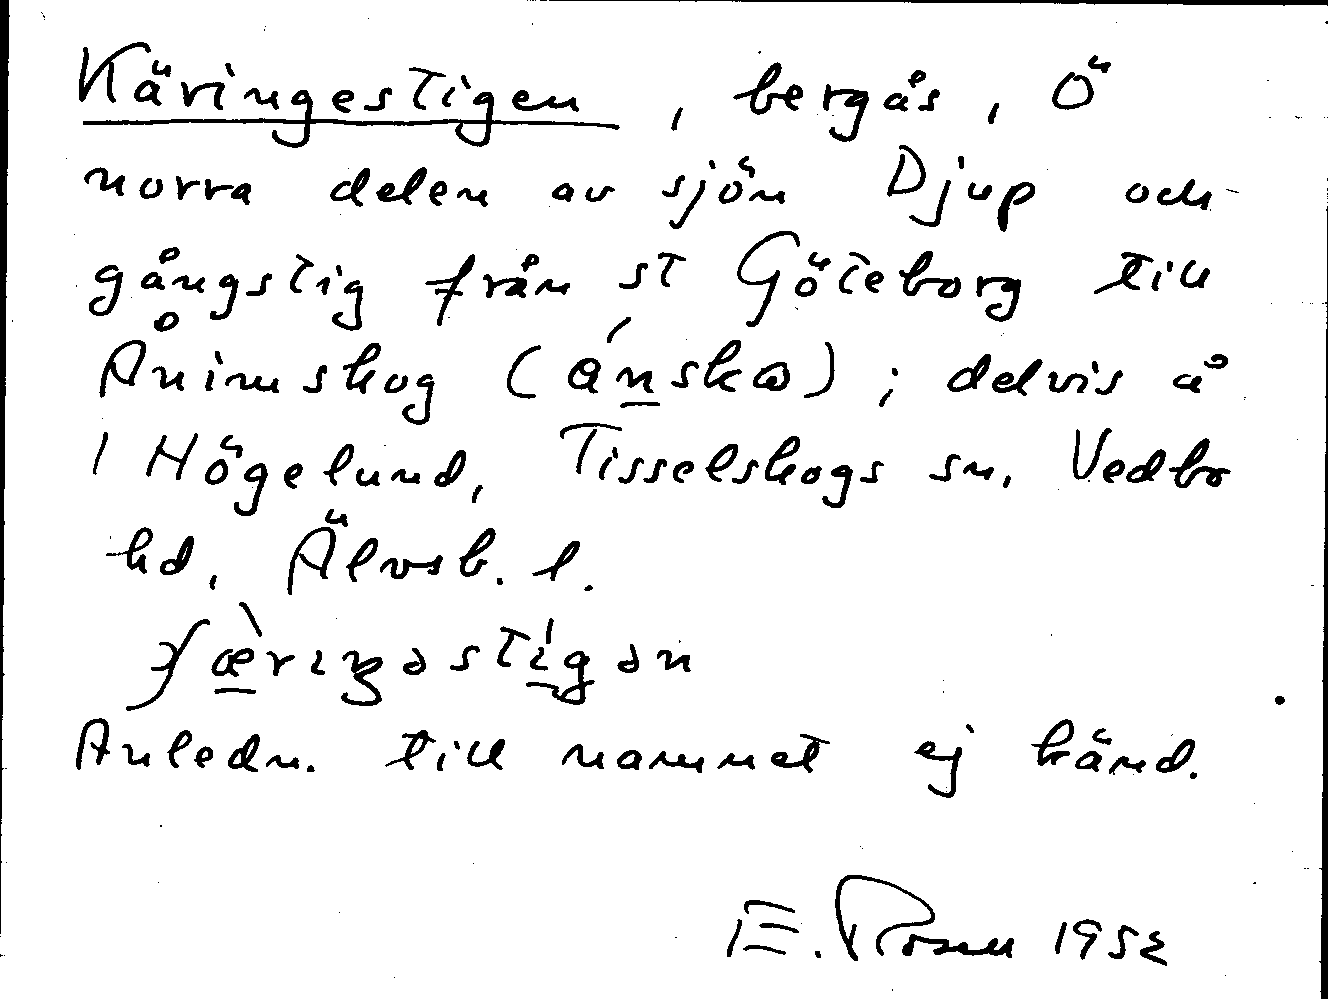 Käringestigen, bergås, Ö
norra delen av sjön Djup och
gångstig från st Göteborg till
Ånimskog (ánskω); delvis å
1 Högelund, Tisselskogs sn, Vedbo
hd, Älvsb. l.
ʃæ̀rıŋəstígən
Anledn. till namnet ej känd.
E. Rosén 1952